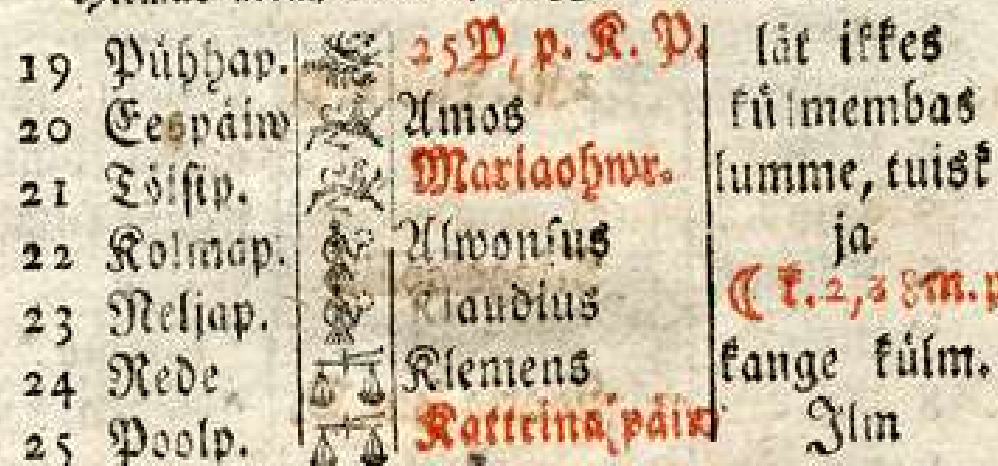 19 Pühhap. 25 P, p. K. P. lät ikkes
20 Eespäiw Amos külmembas
21 Töisip. Mariaohwr. lumme, tuisk
22 Kolmap. Alwonsus ja
23 Neljap. Klaudius ☾ k. 2,
24 Rede Klemens kange külm.
25 Poolp. Kattrina päiw Ilm